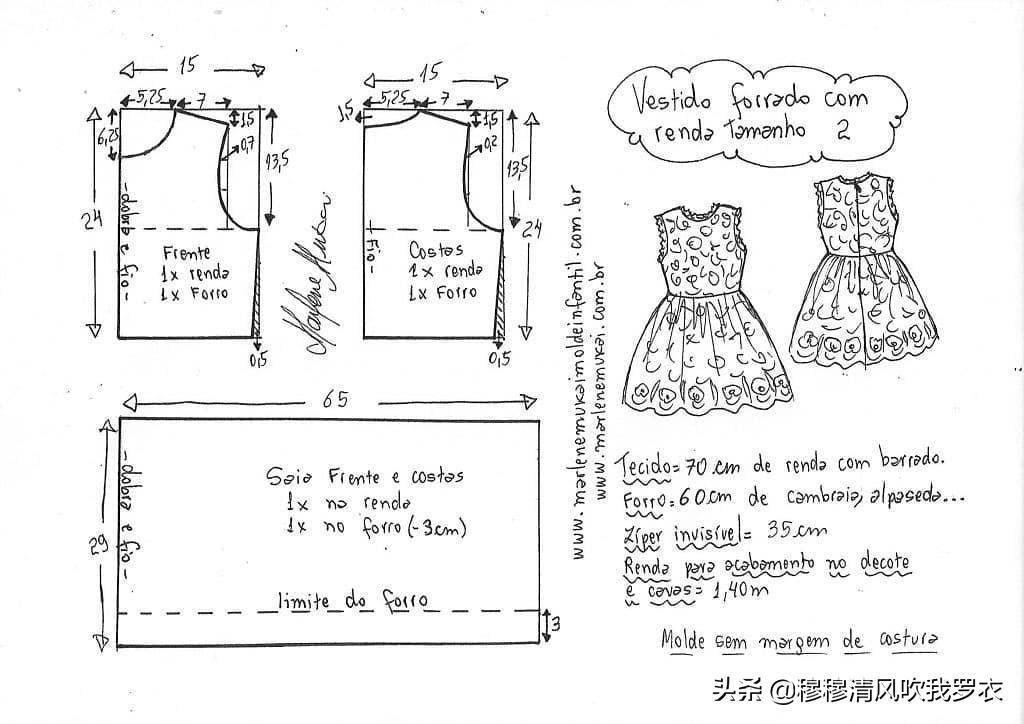 Vestido forrado com
renda tamanho 2
15
5,25
7
6,25
1,5
0,7
13,5
24
-dobra e fio-
Frente
1x renda
1x Forro
0,5
15
5,25
7
1,5
1,5
0,2
13,5
24
fio-
Costas
1x renda
1x Forro
0,5
www.marlenemukaimoldeinfantil.com.br
www.marlenemukai.com.br
65
29
-dobra e fio-
Saia Frente e costas
1x na renda
1x no forro (-3cm)
limite do forro
3
Tecido= 70 cm de renda com barrado.
Forro= 60cm de cambraia, alpaseda...
Zíper invisível= 35cm
Renda para acabamento no decote
e cavas= 1,40m
Molde sem margem de costura
头条 @穆穆清风吹我罗衣